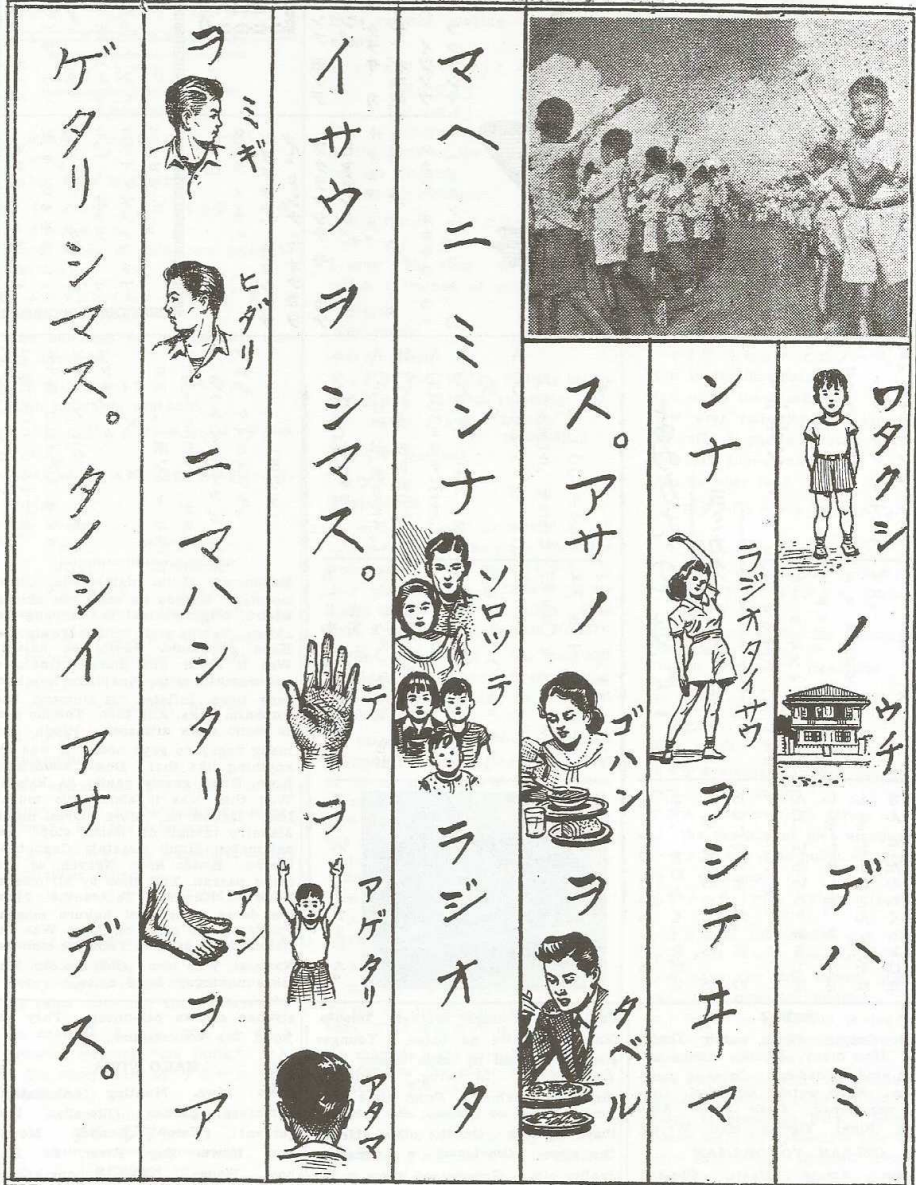 ワタクシノウチデハミ
ンナラジオタイサウヲシテヰマ
ス。アサノゴハンヲタベル
マヘニミンナソロツテラジオタ
イサウヲシマス。テヲアゲタリアタマ
ヲミギヒダリニマハシタリアシヲア
ゲタリシマス。タノシイアサデス。